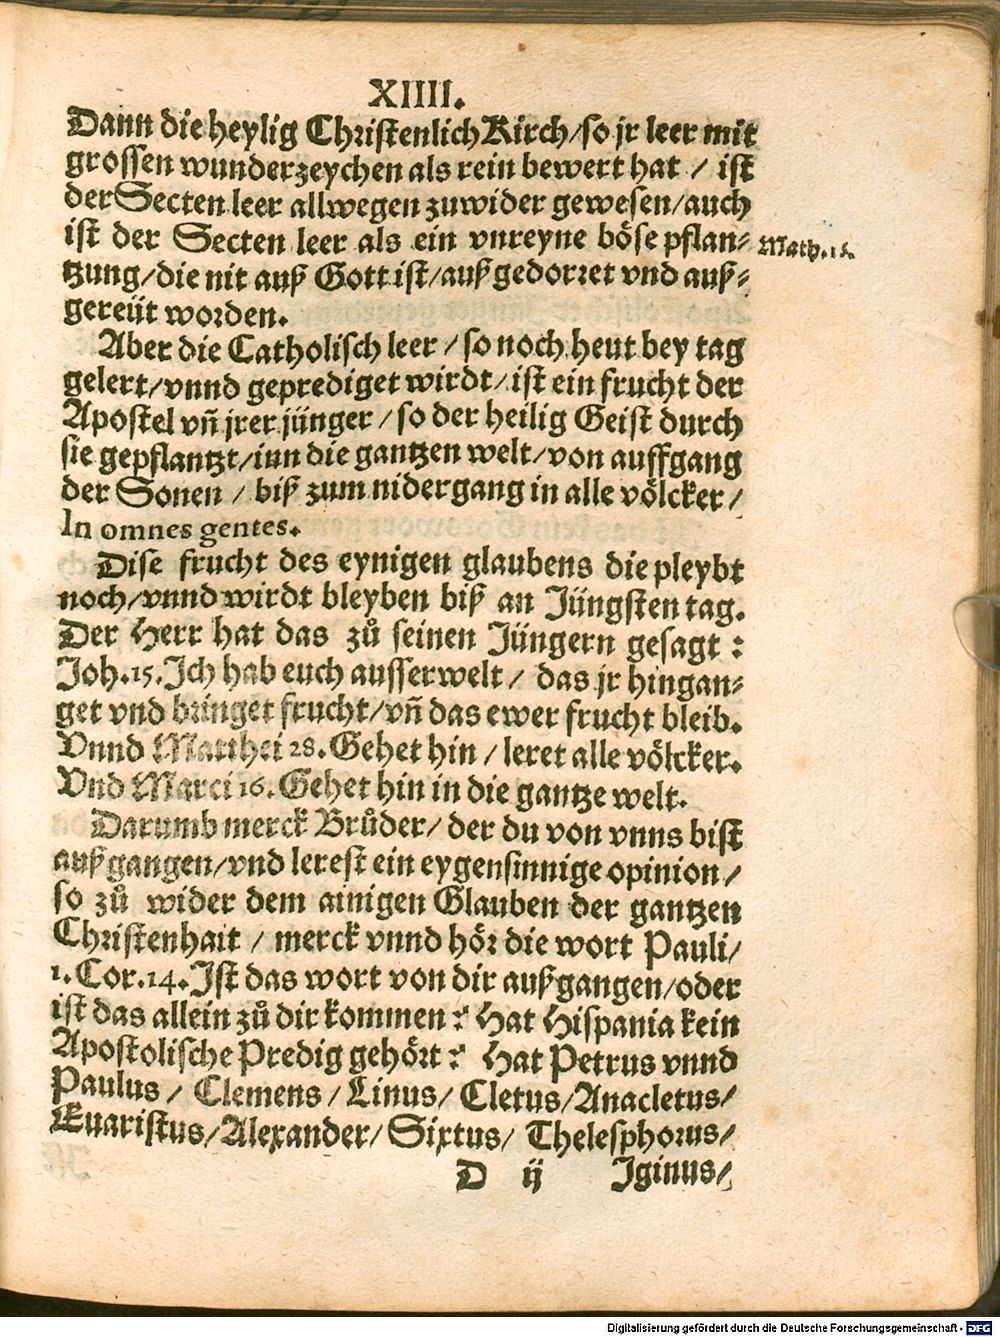 XIIII.
Dann die heylig Christenlich Kirch/so jr leer mit
grossen wunderzeychen als rein bewert hat / ist
der Secten leer allwegen zuwider gewesen/auch
ist der Secten leer als ein vnreyne böse pflan-
Math. 15.
tzung/die nit auß Gott ist/außgedorret vnd auß-
gereüt worden.
Aber die Catholisch leer / so noch heut bey tag
gelert/vnnd geprediget wirdt/ist ein frucht der
Apostel vñ jrer jünger / so der heilig Geist durch
sie gepflantzt/inn die gantzen welt/von auffgang
der Sonen / biß zum nidergang in alle völcker /
In omnes gentes.
Dise frucht des eynigen glaubens die pleybt
noch/vnnd wirdt bleyben biß an Jüngsten tag.
Der Herr hat das zů seinen Jüngern gesagt :
Joh.15. Ich hab euch ausserwelt / das jr hingan-
get vnd bringet frucht/vñ das ewer frucht bleib.
Vnnd Matthei 28. Gehet hin / leret alle völcker.
Vnd Marci 16. Gehet hin in die gantze welt.
Darumb merck Brůder/ der du von vnns bist
außgangen/vnd lerest ein eygensinnige opinion /
so zů wider dem ainigen Glauben der gantzen
Christenhait / merck vnnd hör die wort Pauli/
1. Cor.14. Ist das wort von dir außgangen/oder
ist das allein zů dir kommen? Hat Hispania kein
Apostolische Predig gehört? Hat Petrus vnnd
Paulus / Clemens / Linus/ Cletus/Anacletus/
Euaristus/Alexander/ Sixtus/ Thelesphorus/
D ij Iginus/
Digitalisierung gefördert durch die Deutsche Forschungsgemeinschaft - DFG